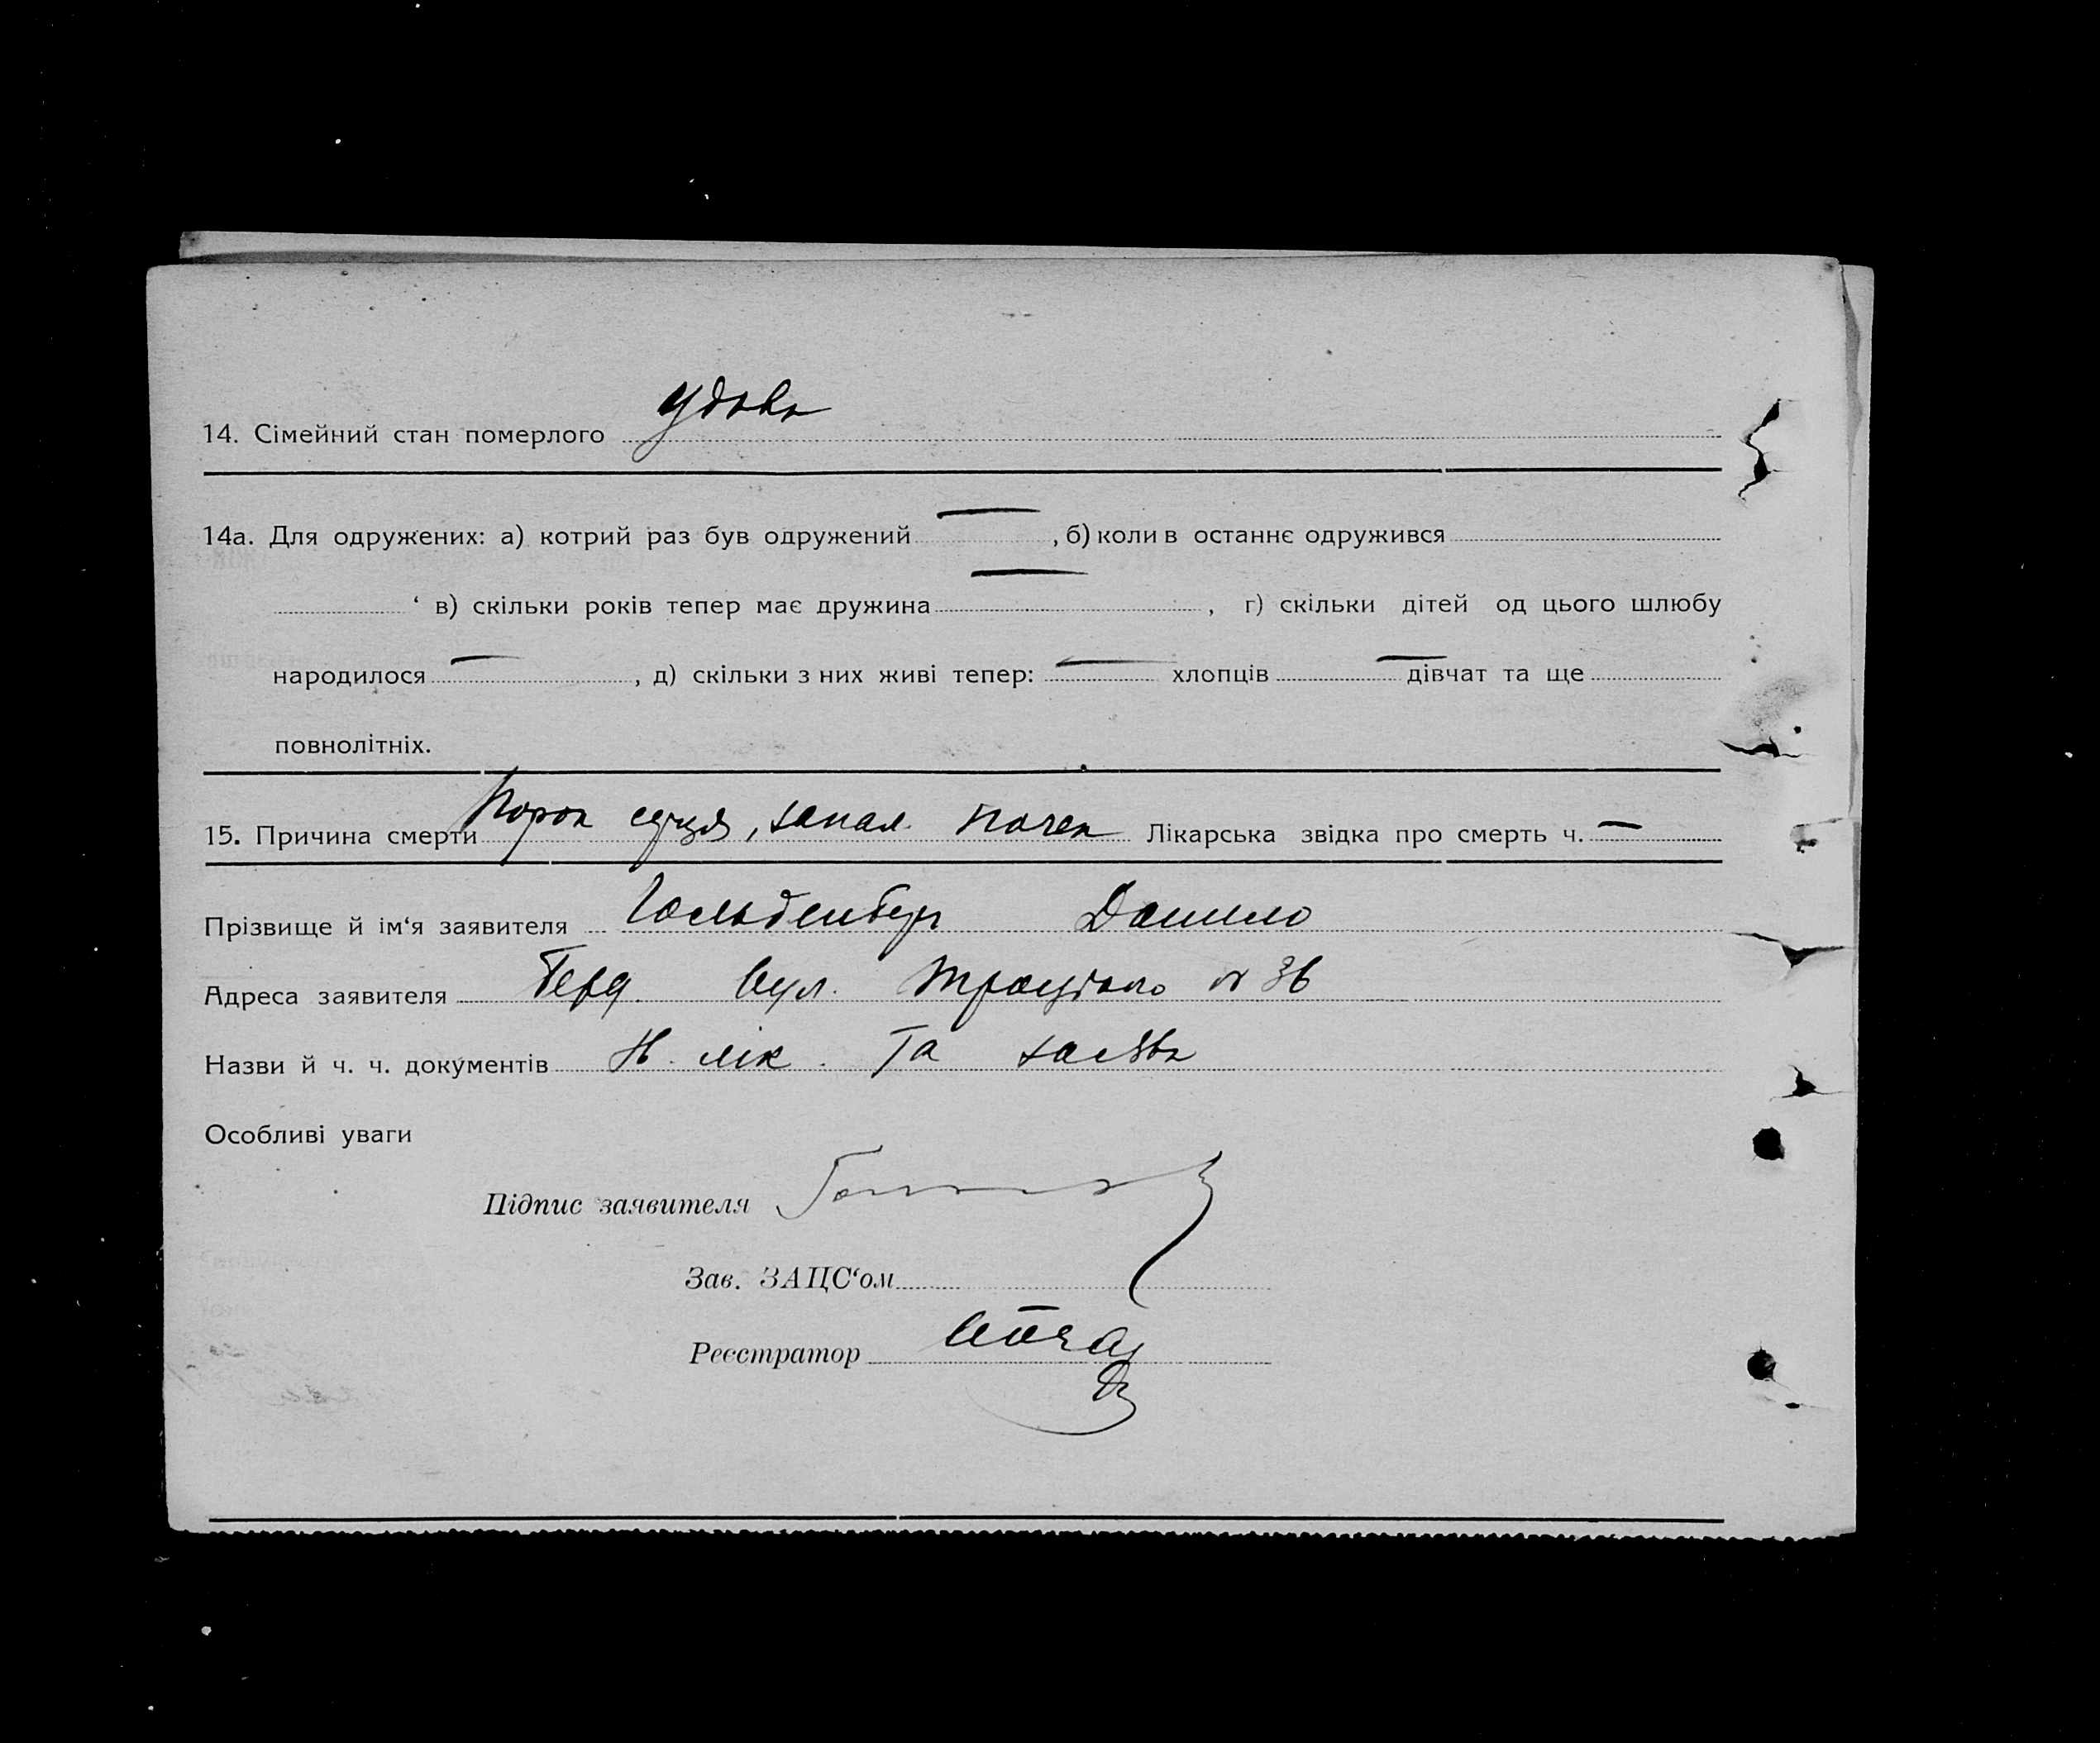 14. Сімейний стан померлого удова
14а. Для одружених: а) котрий раз був одружений — , б) коли в останнє одружився
‘ в) скільки років тепер має дружина — , г) скільки дітей од цього шлюбу
народилося — , д) скільки з них живі тепер: — хлопців — дівчат та ще
повнолітніх.
15. Причина смерти Порок серця, запал. почек Лікарська звідка про смерть ч. —
Прізвище й ім‘я заявителя Гольденберг Данило
Адреса заявителя Берд. вул. Троцького № 36
Назви й ч. ч. документів лік. та заява
Особливі уваги
Підпис заявителя
Зав. ЗАЦС‘ом
Реєстратор